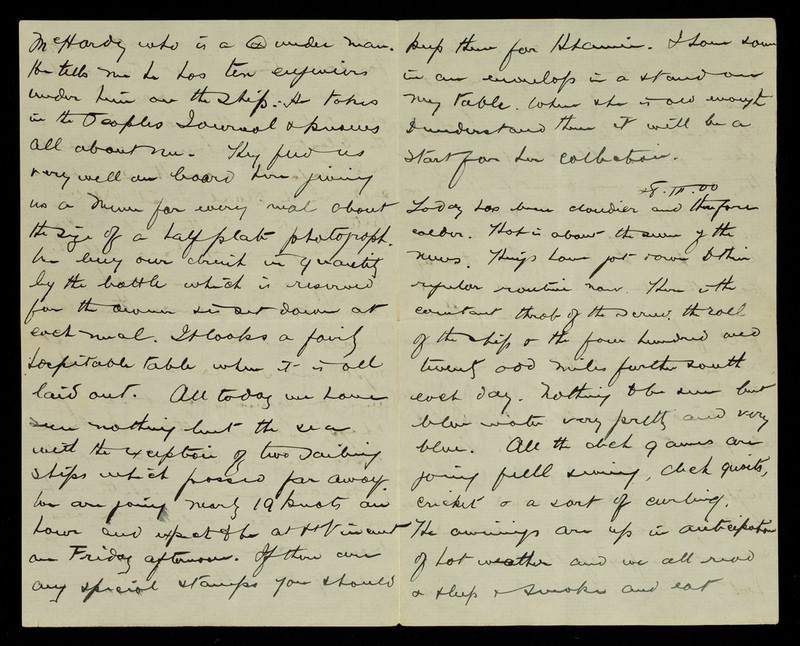 McHardy who is a Dundee man.
He tells me he has ten engineers
under him on the ship. He takes
in the Peoples Journal & knows
all about me. They feed us
very well on board here giving
us a menu for every meal about
the size of a half plate photograph.
We buy our drink in quantity
by the bottle which is reserved
for the owner & is set down at
each meal. It looks a fairly
hospitable table when it is all
laid out. All today we have
seen nothing but the sea
with the exception of two sailing
ships which passed far away
We are going nearly 19 knots an
hour and expect to be at St Vincent
on Friday afternoon. If there are
any special stamps you should
keep them for. I have some
in an envelop in a stand on
my table. When she is old enough
to understand them it will be a
start for her collection.
00
Today has been cloudier and therefore
colder. That is about the sum of the
news. Things have got down to their
regular routine now. There is the
constant throb of the screw, the roll
of the ship & the four hundred and
twenty odd miles further south
each day. Nothing to be seen but
blue water very pretty and very
blue. All the deck games are
going full swing, deck quoits,
cricket & a sort of curling.
The awnings are up in anticipation
of hot weather and we all read
& sleep & smoke and eat